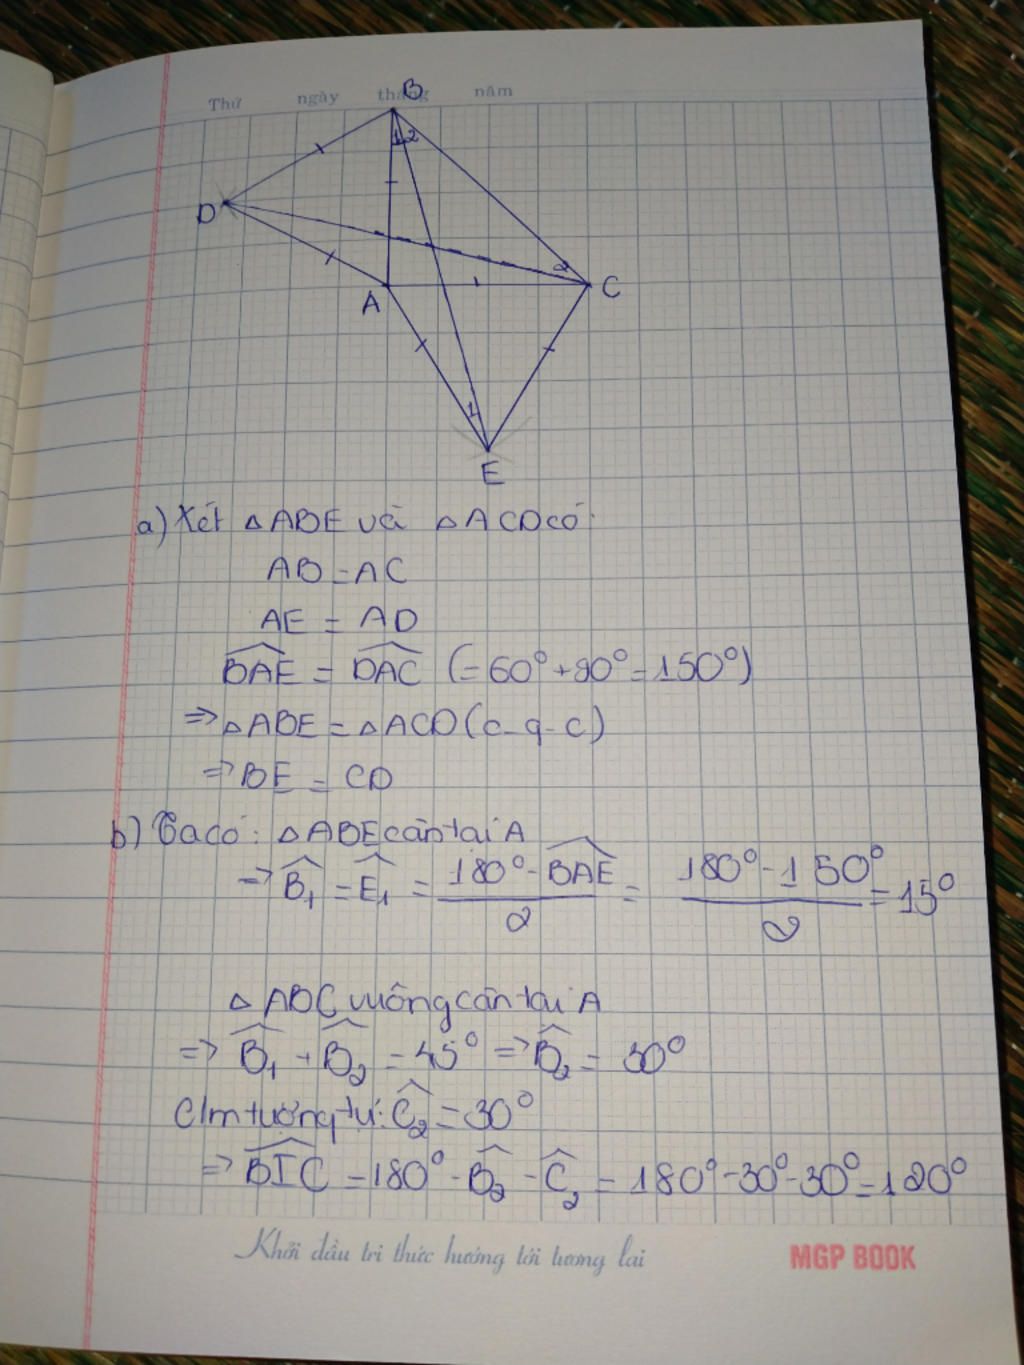 Thứ ngày tháng năm
B
1 2
D
2
A
C
1
E
a) Xét △ABE và △ACD có:
AB = AC
AE = AD
BAE = DAC (= 60° + 90° = 150°)
⇒ △ABE = △ACD (c-g-c)
⇒ BE = CD
b) Ta có: △ABE cân tại A
⇒ B₁ = E₁ = (180° - BAE)/2 = (180° - 150°)/2 = 15°
△ABC vuông cân tại A
⇒ B₁ + B₂ = 45° ⇒ B₂ = 30°
C/m tương tự: C₂ = 30°
⇒ BIC = 180° - B₂ - C₂ = 180° - 30° - 30° = 120°
Khởi đầu tri thức hướng tới tương lai
MGP BOOK